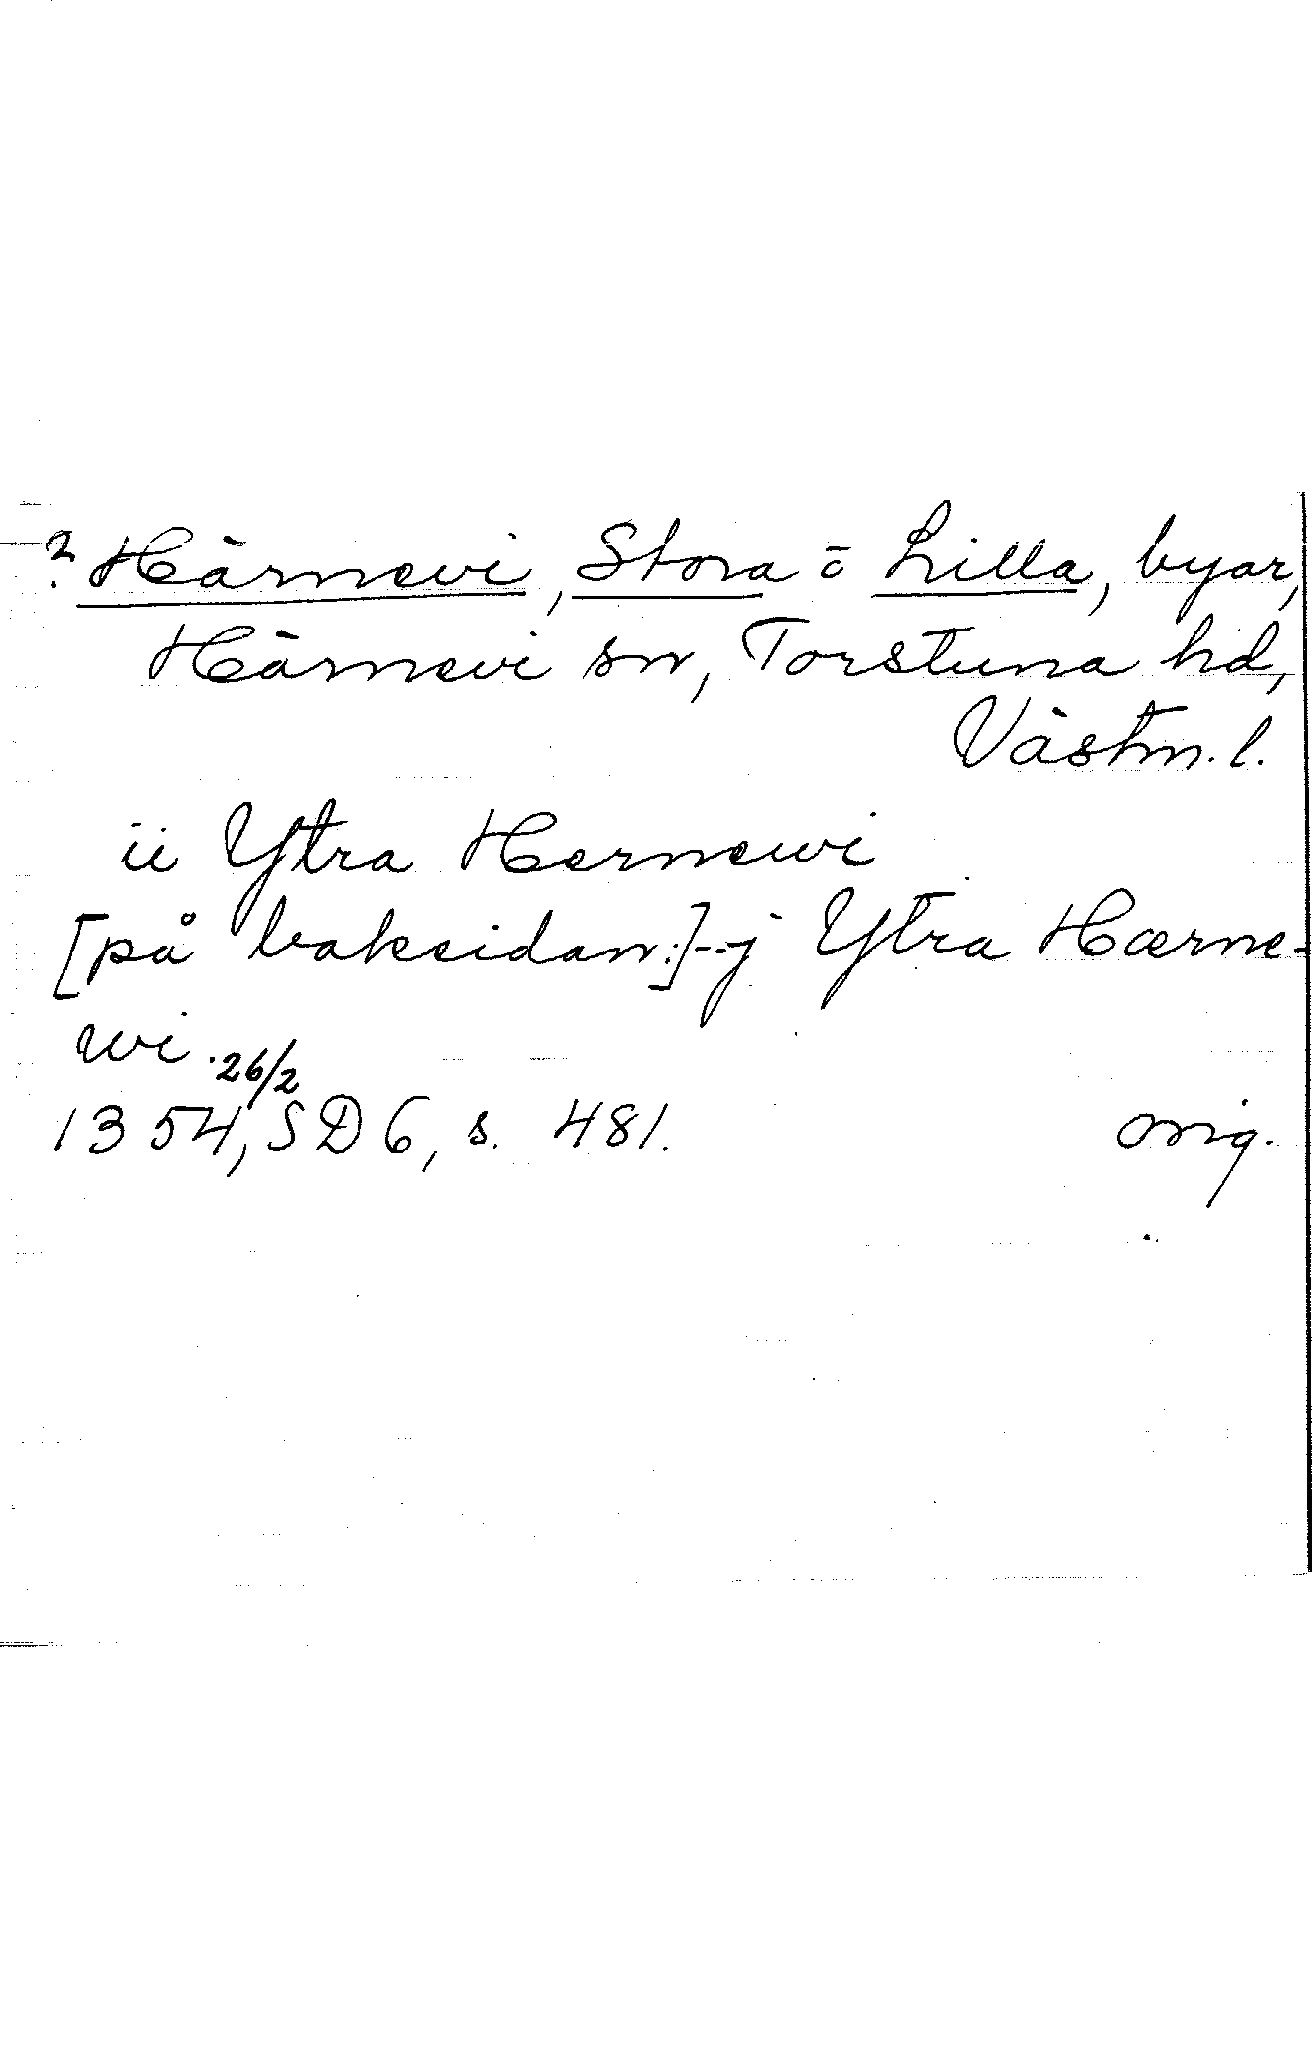 ? Härnevi, Stora o Lilla, byar,
Härnevi sn, Torstuna hd,
Västm. l.
ii Ytra Hernewi
[på baksidan:] -- j Ytra Hærne-
wi.
26/2
1354, SD 6, s. 481. orig.